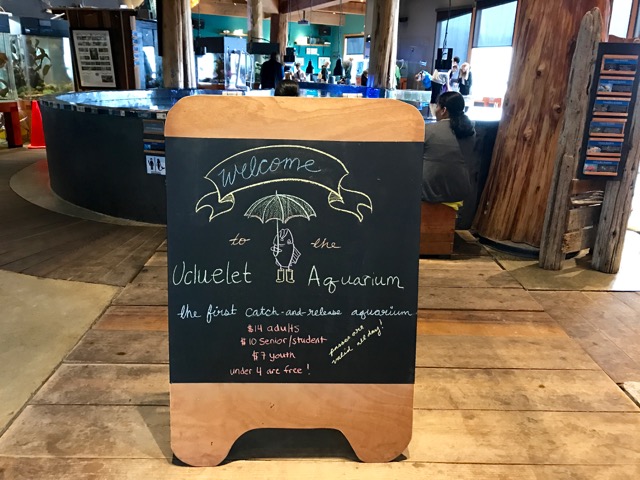 welcome
to the
Ucluelet Aquarium
the first catch-and-release aquarium
$14 adults
$10 Senior/student
$7 youth
under 4 are free!
passes are
valid all day!